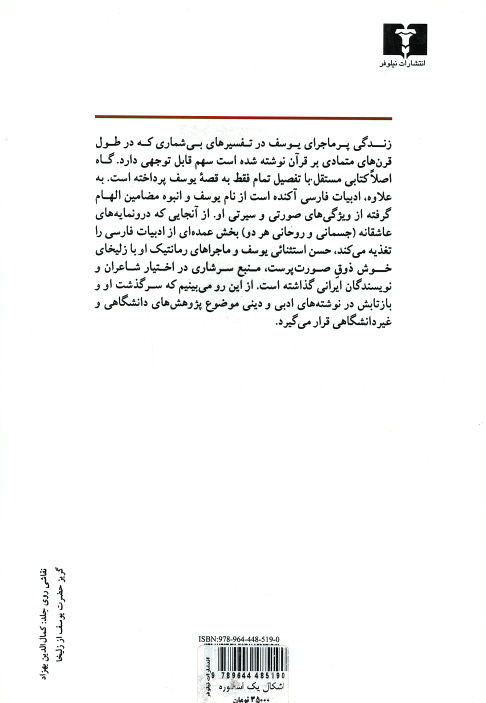 انتشارات نیلوفر
زندگی پرماجرای یوسف در تفسیرهای بی‌شماری که در طول
قرن‌های متمادی بر قرآن نوشته شده است سهم قابل توجهی دارد. گاه
اصلاً کتابی مستقل با تفصیل تمام فقط به قصهٔ یوسف پرداخته است. به
علاوه، ادبیات فارسی آکنده است از نام یوسف و انبوه مضامین الهام
گرفته از ویژگی‌های صورتی و سیرتی او. از آنجایی که درونمایه‌های
عاشقانه (جسمانی و روحانی هر دو) بخش عمده‌ای از ادبیات فارسی را
تغذیه می‌کند، حسن استثنائی یوسف و ماجراهای رمانتیک او با زلیخای
خوش ذوقِ صورت‌پرست، منبع سرشاری در اختیار شاعران و
نویسندگان ایرانی گذاشته است. از این رو می‌بینیم که سرگذشت او و
بازتابش در نوشته‌های ادبی و دینی موضوع پژوهش‌های دانشگاهی و
غیردانشگاهی قرار می‌گیرد.
نقاشی روی جلد: کمال‌الدین بهزاد
گریز حضرت یوسف از زلیخا
ISBN:978-964-448-519-0
انتشارات نیلوفر
9 789644 485190
اشکال یک اسطوره
۳۵۰۰۰ تومان